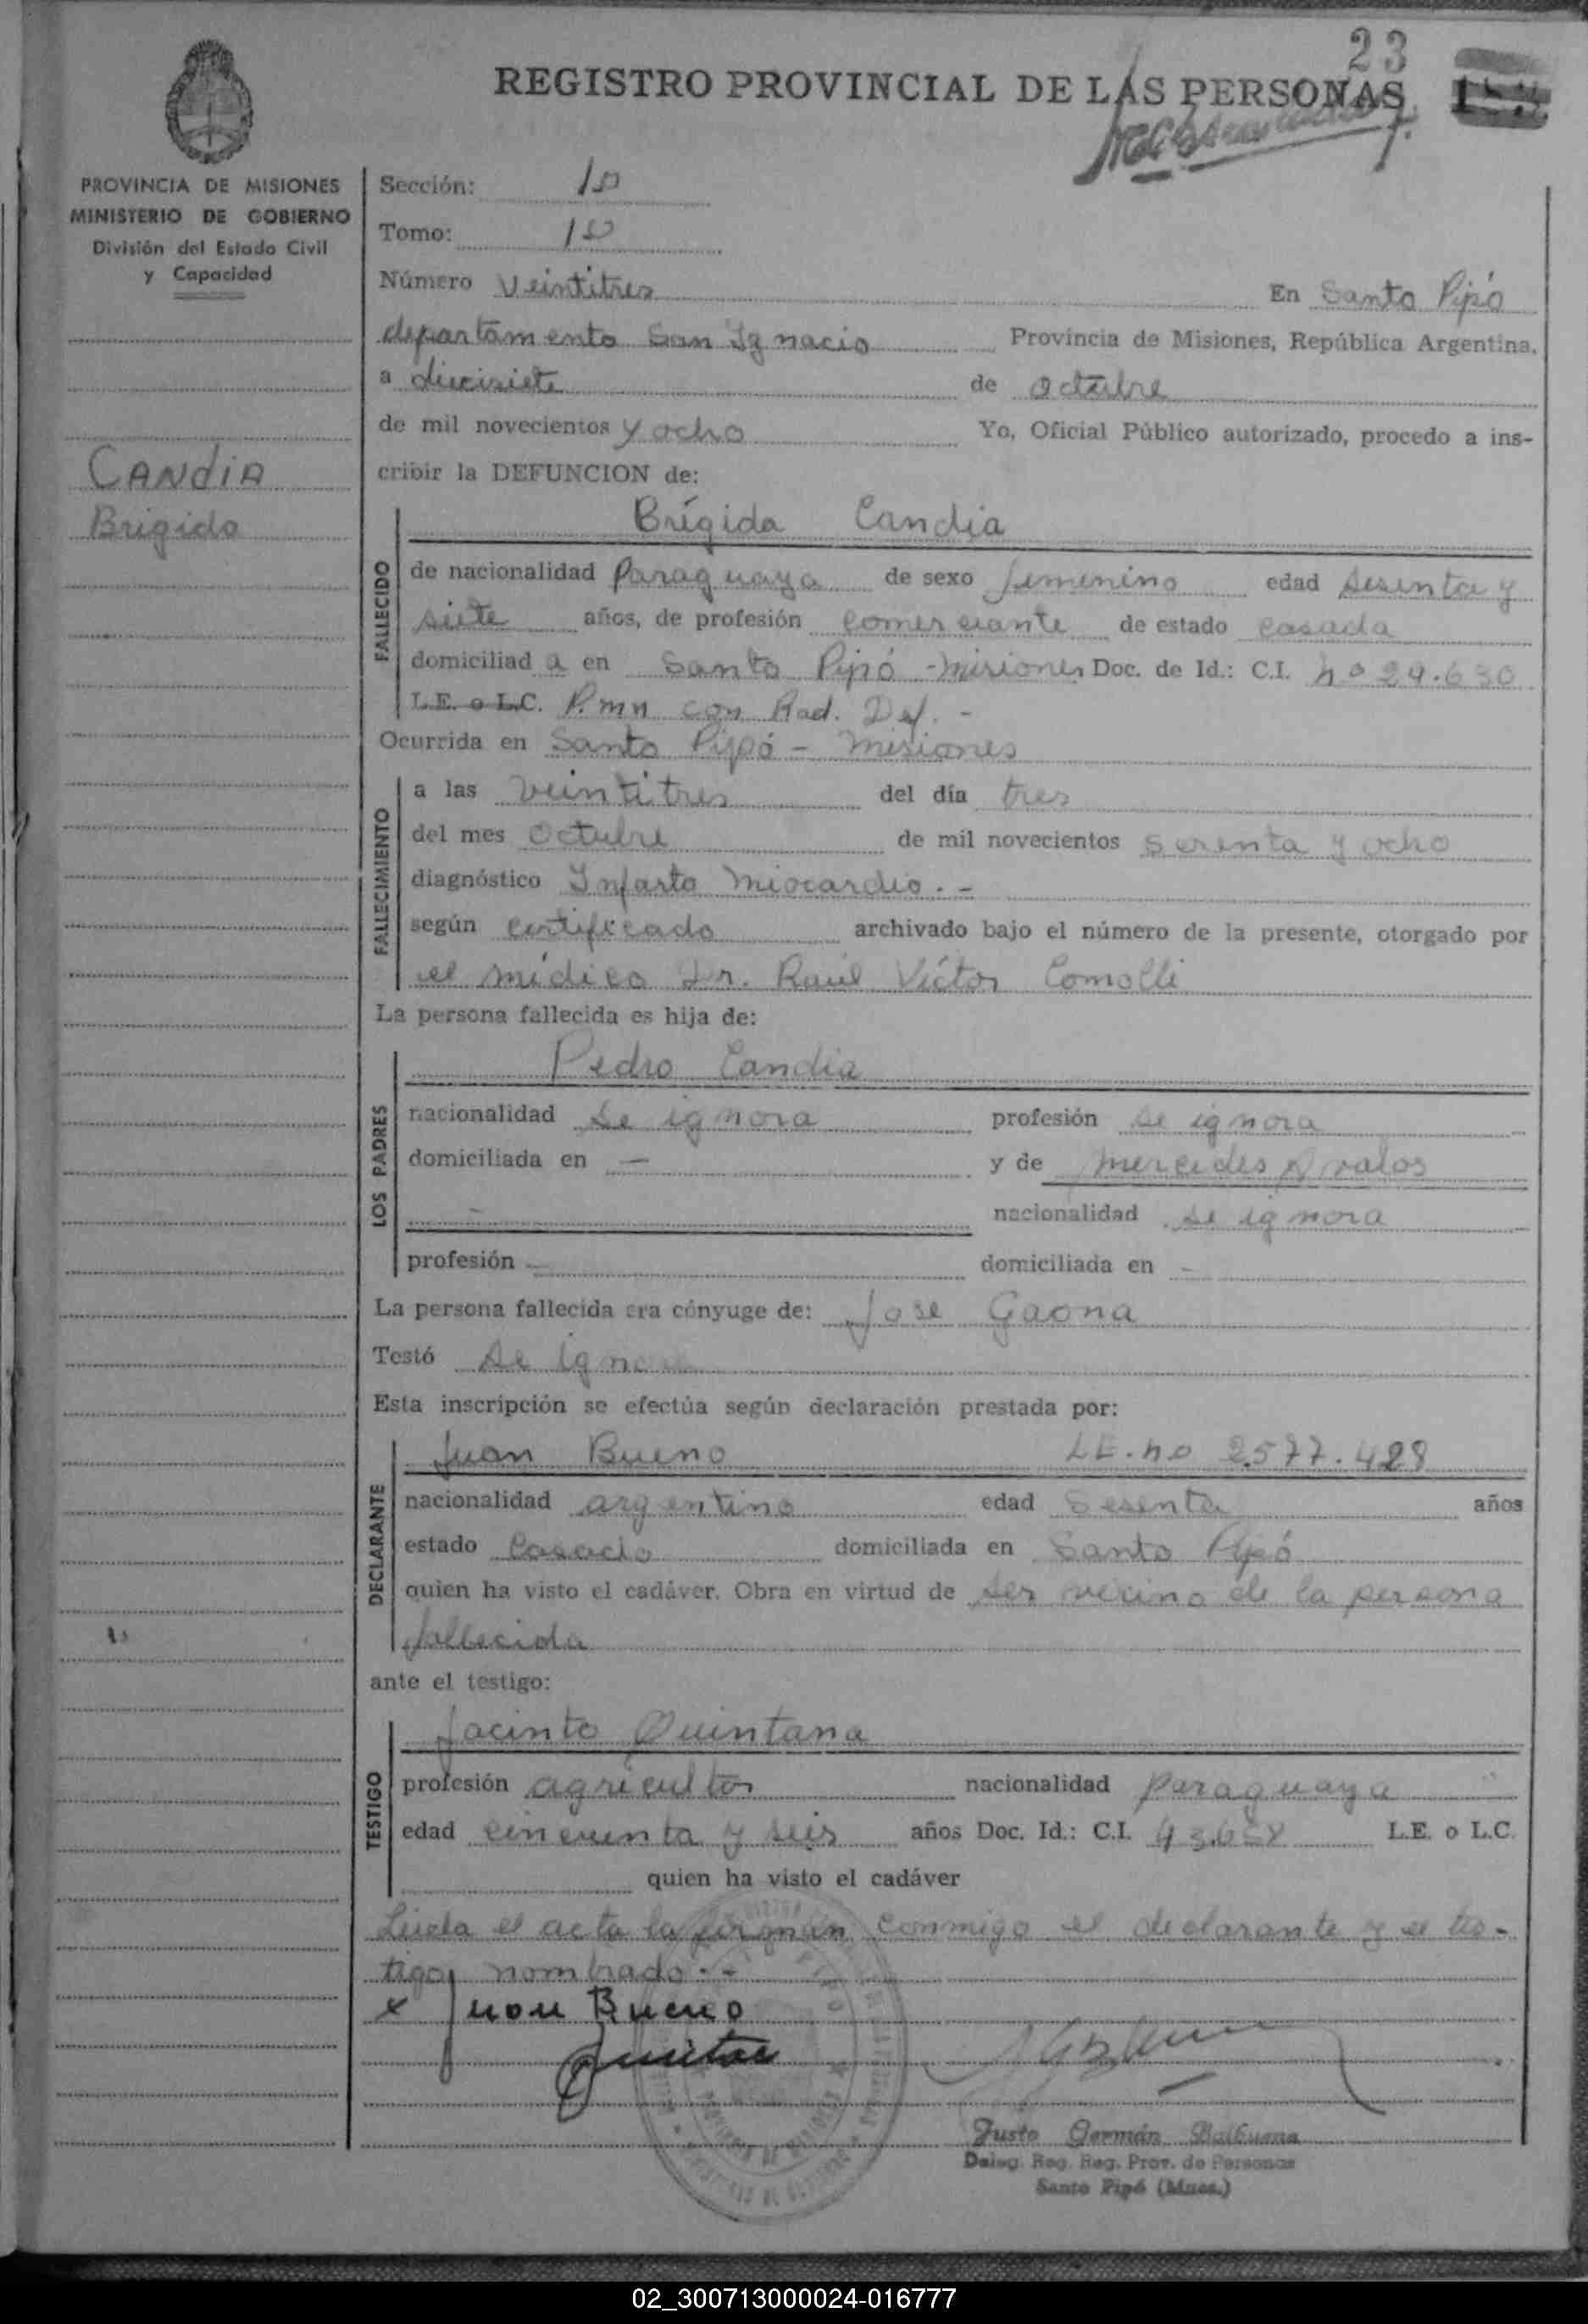 23
REGISTRO PROVINCIAL DE LAS PERSONAS
PROVINCIA DE MISIONES
MINISTERIO DE GOBIERNO
División del Estado Civil
y Capacidad
CANDIA
Brigida
Sección: 1º
Tomo: 1º
Número Veintitres En Santo Pipó
departamento San Ignacio Provincia de Misiones, República Argentina,
a diecisiete de Octubre
de mil novecientos y ocho Yo, Oficial Público autorizado, procedo a ins-
cribir la DEFUNCION de:
Brígida Candia
FALLECIDO
de nacionalidad Paraguaya de sexo femenino edad sesenta y
siete años, de profesión comerciante de estado casada
domiciliad a en Santo Pipó - Misiones Doc. de Id.: C.I. nº 29.630
L.E. o L.C. P.mn con Rad. Def. -
Ocurrida en Santo Pipó - Misiones
FALLECIMIENTO
a las veintitres del día tres
del mes Octubre de mil novecientos sesenta y ocho
diagnóstico Infarto Miocardio. -
según certificado archivado bajo el número de la presente, otorgado por
el médico Dr. Raúl Víctor Comolli
La persona fallecida es hija de:
LOS PADRES
Pedro Candia
nacionalidad se ignora profesión se ignora
domiciliada en — y de Mercedes Avalos
- nacionalidad se ignora
profesión - domiciliada en -
La persona fallecida era cónyuge de: Jose Gaona
Testó se ignora
Esta inscripción se efectúa según declaración prestada por:
DECLARANTE
Juan Bueno L.E. nº 2.577.428
nacionalidad argentino edad sesenta años
estado casado domiciliada en Santo Pipó
quien ha visto el cadáver. Obra en virtud de ser vecino de la persona
fallecida
ante el testigo:
TESTIGO
Jacinto Quintana
profesión agricultor nacionalidad paraguaya
edad cincuenta y seis años Doc. Id.: C.I. L.E. o L.C.
quien ha visto el cadáver
Leida el acta la firman conmigo el declarante y el tes-
tigo nombrado. -
x Juan Bueno
Justo Germán Balbuena
Deleg. Reg. Prov. de Personas
Santo Pipó (Mnes.)
02_300713000024-016777